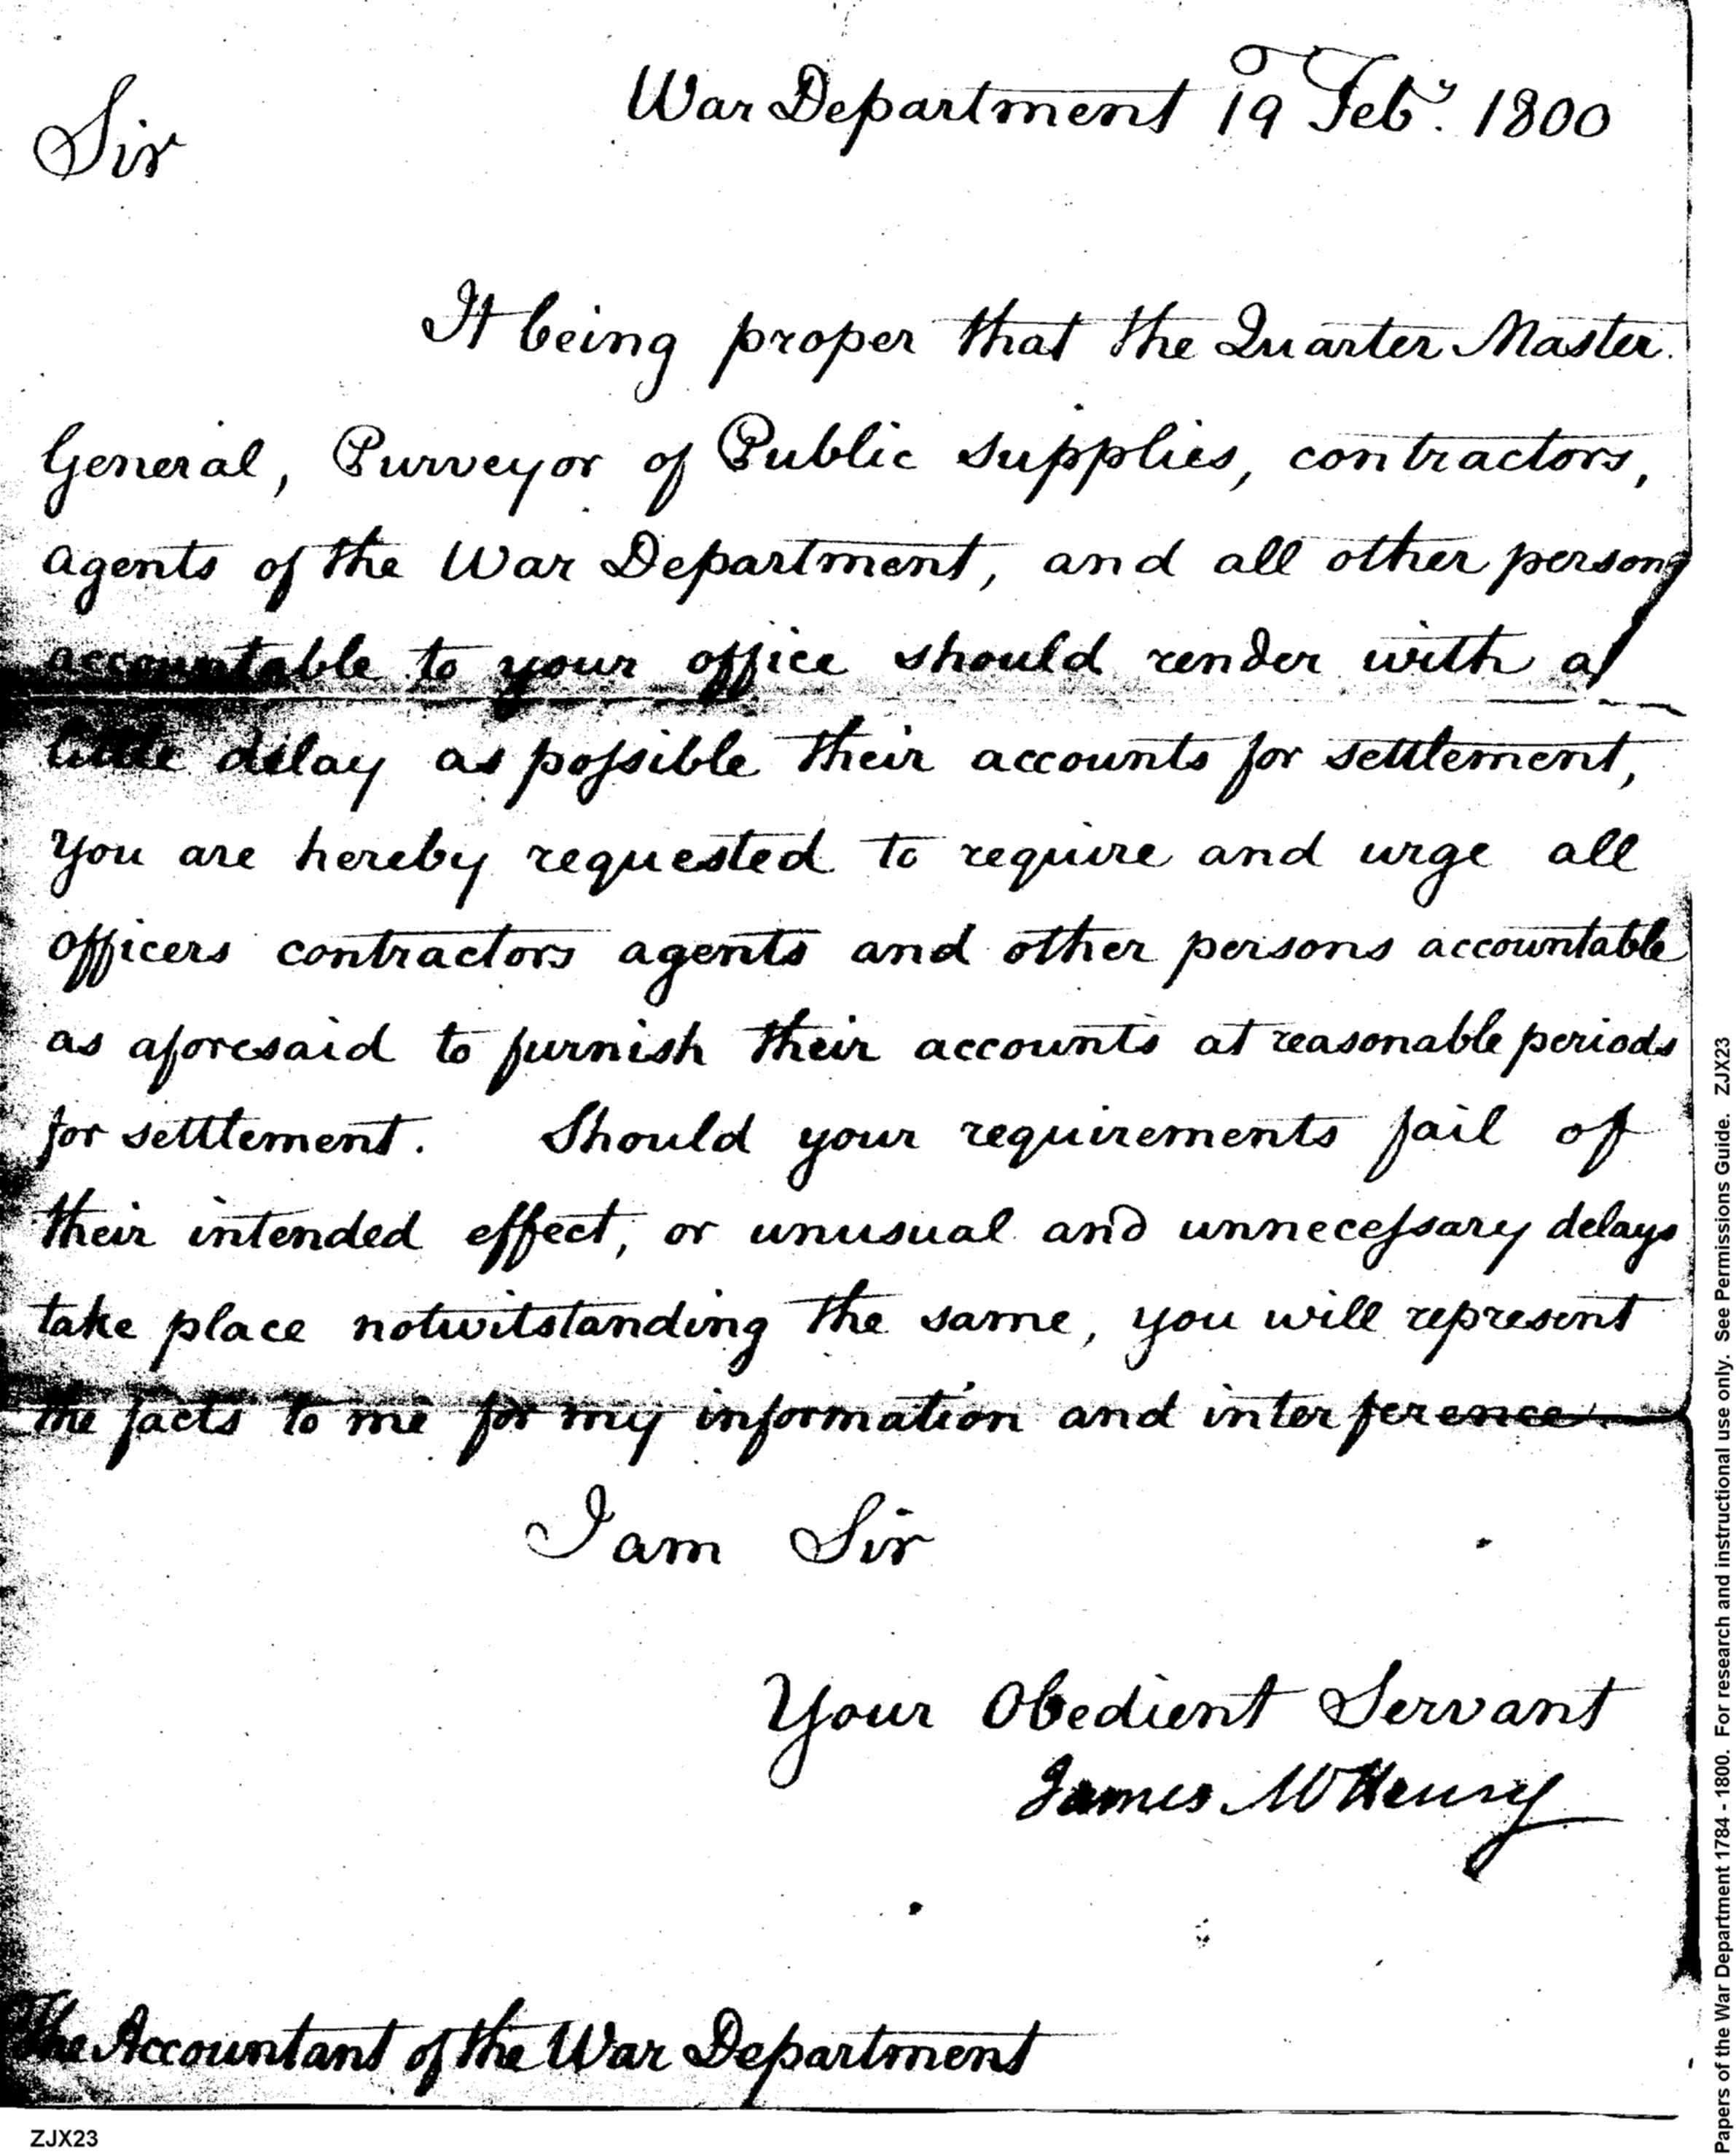 War Department 19 Feby. 1800
Sir
It being proper that the Quarter Master
General, Purveyor of Public Supplies, contractors,
agents of the War Department, and all other persons
accountable to your office should render with as
little delay as possible their accounts for settlement,
you are hereby requested to require and urge all
officers contractors agents and other persons accountable
as aforesaid to furnish their accounts at reasonable periods
for settlement. Should your requirements fail of
their intended effect, or unusual and unnecessary delays
take place notwitstanding the same, you will represent
the facts to me for my information and interference.
I am Sir
Your Obedient Servant
James McHenry
The Accountant of the War Department
ZJX23
Papers of the War Department 1784 - 1800. For research and instructional use only. See Permissions Guide. ZJX23